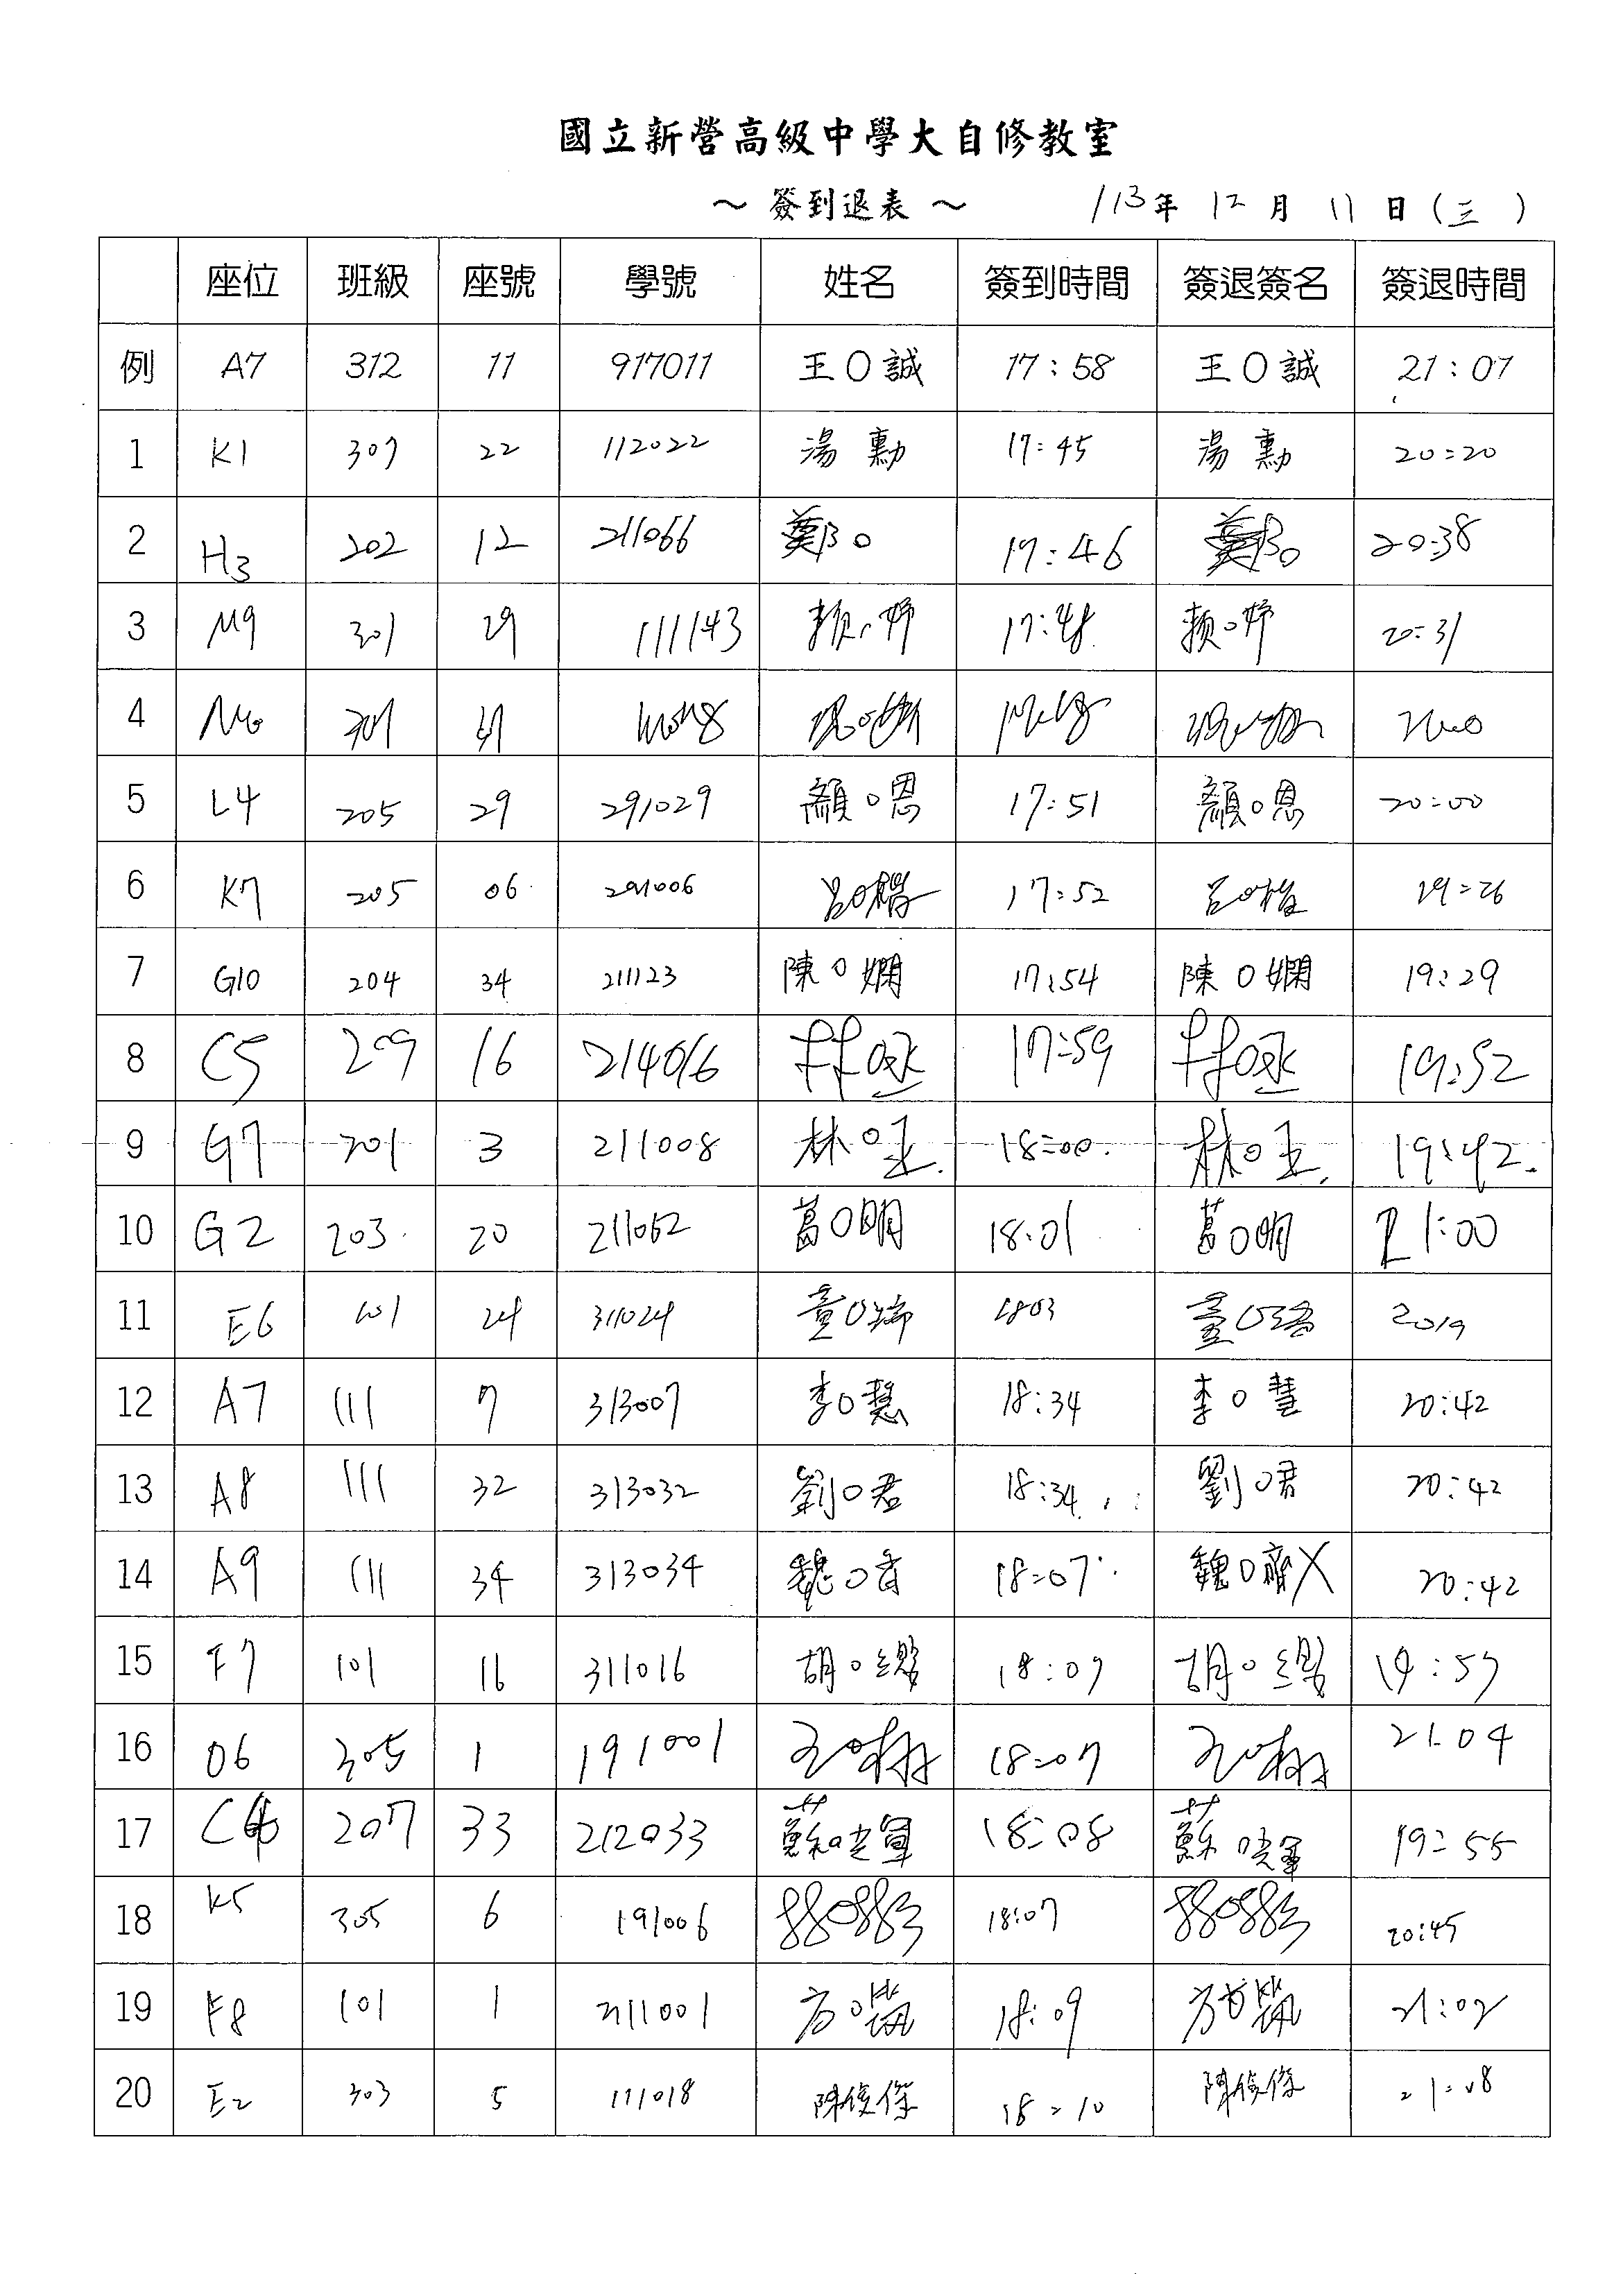 國立新營高級中學大自修教室
～ 簽到退表 ～ 113年 12月 11日(三)
座位 班級 座號 學號 姓名 簽到時間 簽退簽名 簽退時間
例 A7 312 11 917011 王O誠 17:58 王O誠 21:07
1 K1 307 22 112022 湯 勳 17:45 湯 勳 20:20
2 H3 202 12 211066 鄭O 17:46 鄭O 20:38
3 M9 301 29 111143 賴O妤 17:48 賴O妤 20:31
4 301
5 L4 205 29 291029 顏O恩 17:51 顏O恩 20:00
6 K7 205 06 291006 呂O 17:52 呂O 19:26
7 G10 204 34 211123 陳O嫻 17:54 陳O嫻 19:29
8 C5 209 16 214016 林O丞 17:59 林O丞 19:52
9 G7 201 3 211008 林O 18:00 林O 19:42
10 G2 203 20 211062 葛O明 18:01 葛O明 21:00
11 E6 101 24 311024 童O 1803 童O 2019
12 A7 111 7 313007 李O慧 18:34 李O慧 20:42
13 A8 111 32 313032 劉O君 18:34 劉O君 20:42
14 A9 111 34 313034 魏O 18:07 魏O 20:42
15 F7 101 16 311016 胡O 18:07 胡O 19:57
16 O6 305 1 191001 18:07 21:04
17 207 33 212033 蘇 18:08 蘇 19:55
18 K5 305 6 191006 18:07 20:45
19 F8 101 1 311001 方O 18:09 方 21:02
20 E2 303 5 111018 陳俊傑 18:10 陳俊傑 21:08